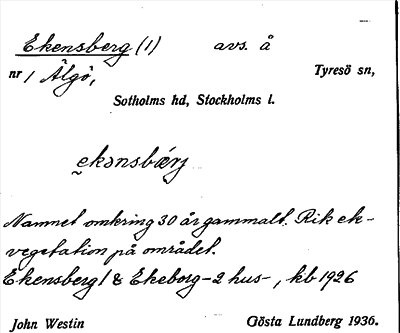 Ekensberg (1) avs. å
nr 1 Älgö, Tyresö sn,
Sotholms hd, Stockholms l.
ekənsbærj
Namnet omkring 30 år gammalt. Rik ek-
vegetation på området.
Ekensberg 1 & Ekeborg - 2 hus -, kb 1926
John Westin Gösta Lundberg 1936.